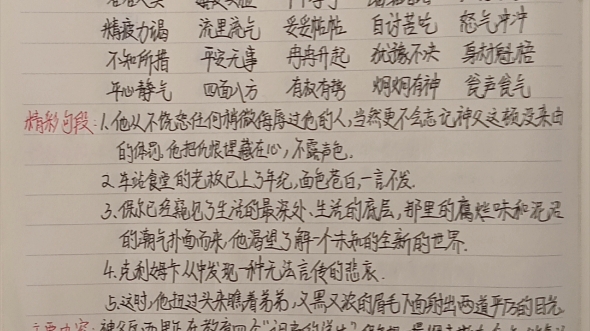 精疲力竭 流里流气 妥妥帖帖 自讨苦吃 怒气冲冲
不知所措 平安无事 冉冉升起 犹豫不决 身材魁梧
平心静气 四面八方 有权有势 炯炯有神 瓮声瓮气
精彩句段:1.他从不饶恕任何稍微侮辱过他的人,当然更不会忘记神父这顿没来由
的体罚。他把仇恨埋藏在心,不露声色。
2.车站食堂的老板已上了年纪,面色苍白,一言不发。
3.保尔已经窥见了生活的最深处、生活的底层,那里的腐烂味和泥沼
的潮气扑面而来,他渴望了解一个未知的全新的世界.
4.克利姆卡从中发现一种无法言传的悲哀.
5.这时,他扭过头来瞧着弟弟,又黑又浓的眉毛下面射出两道平厉的目光.
主要内容:神父